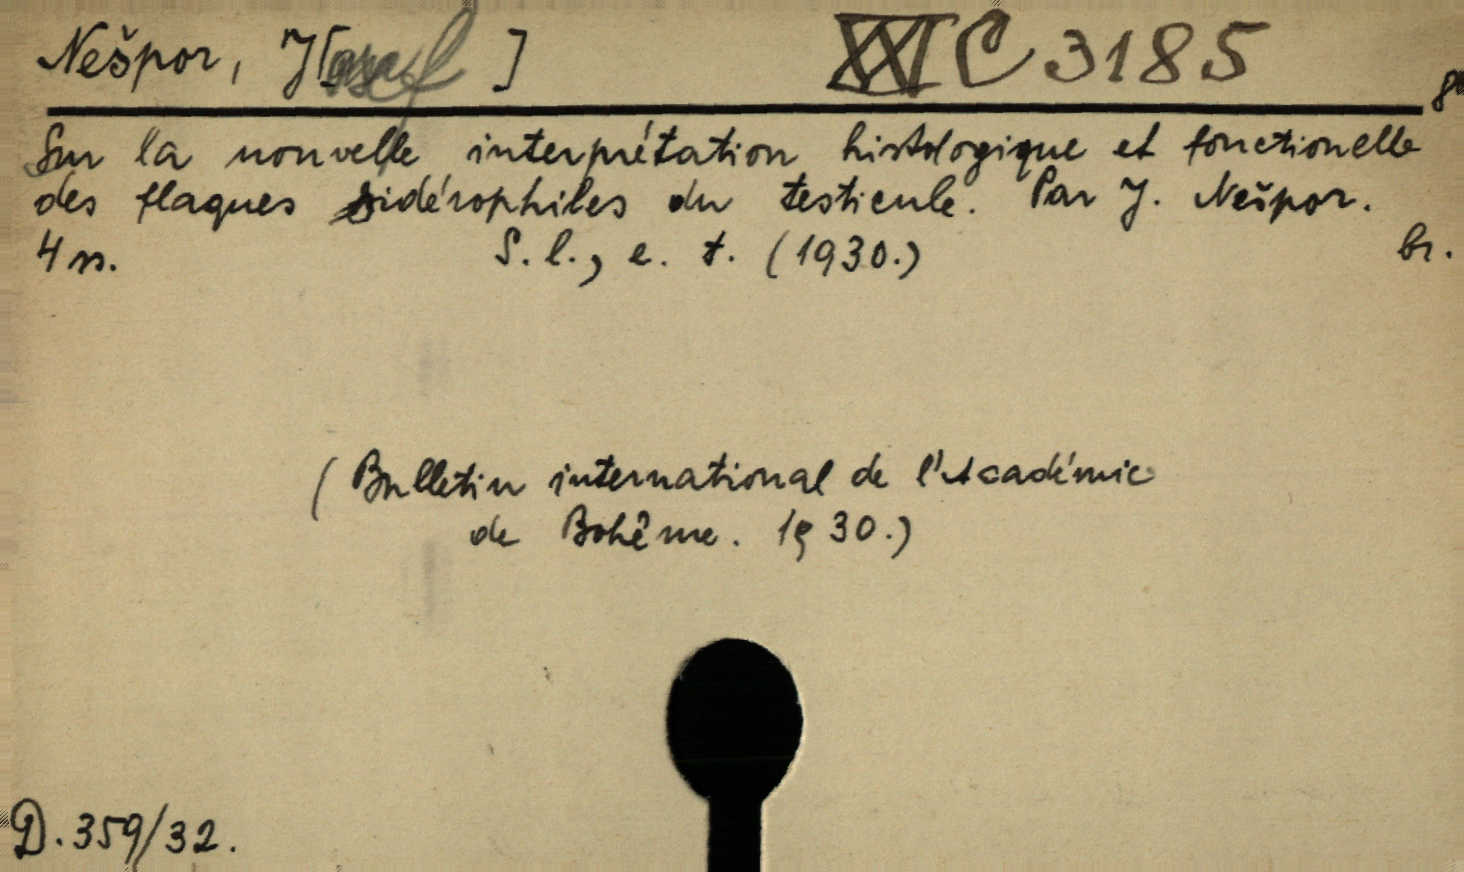 Nešpor, J[osef] XXI C 3185
8°
Sur la nouvelle interprétation histologique et fonctionelle
des plaques sidérophiles du testicule. Par J. Nešpor.
4 ss. S. l., e. t. (1930.) br.
(Bulletin international de l'Académie
de Bohême. 1930.)
D. 359/32.